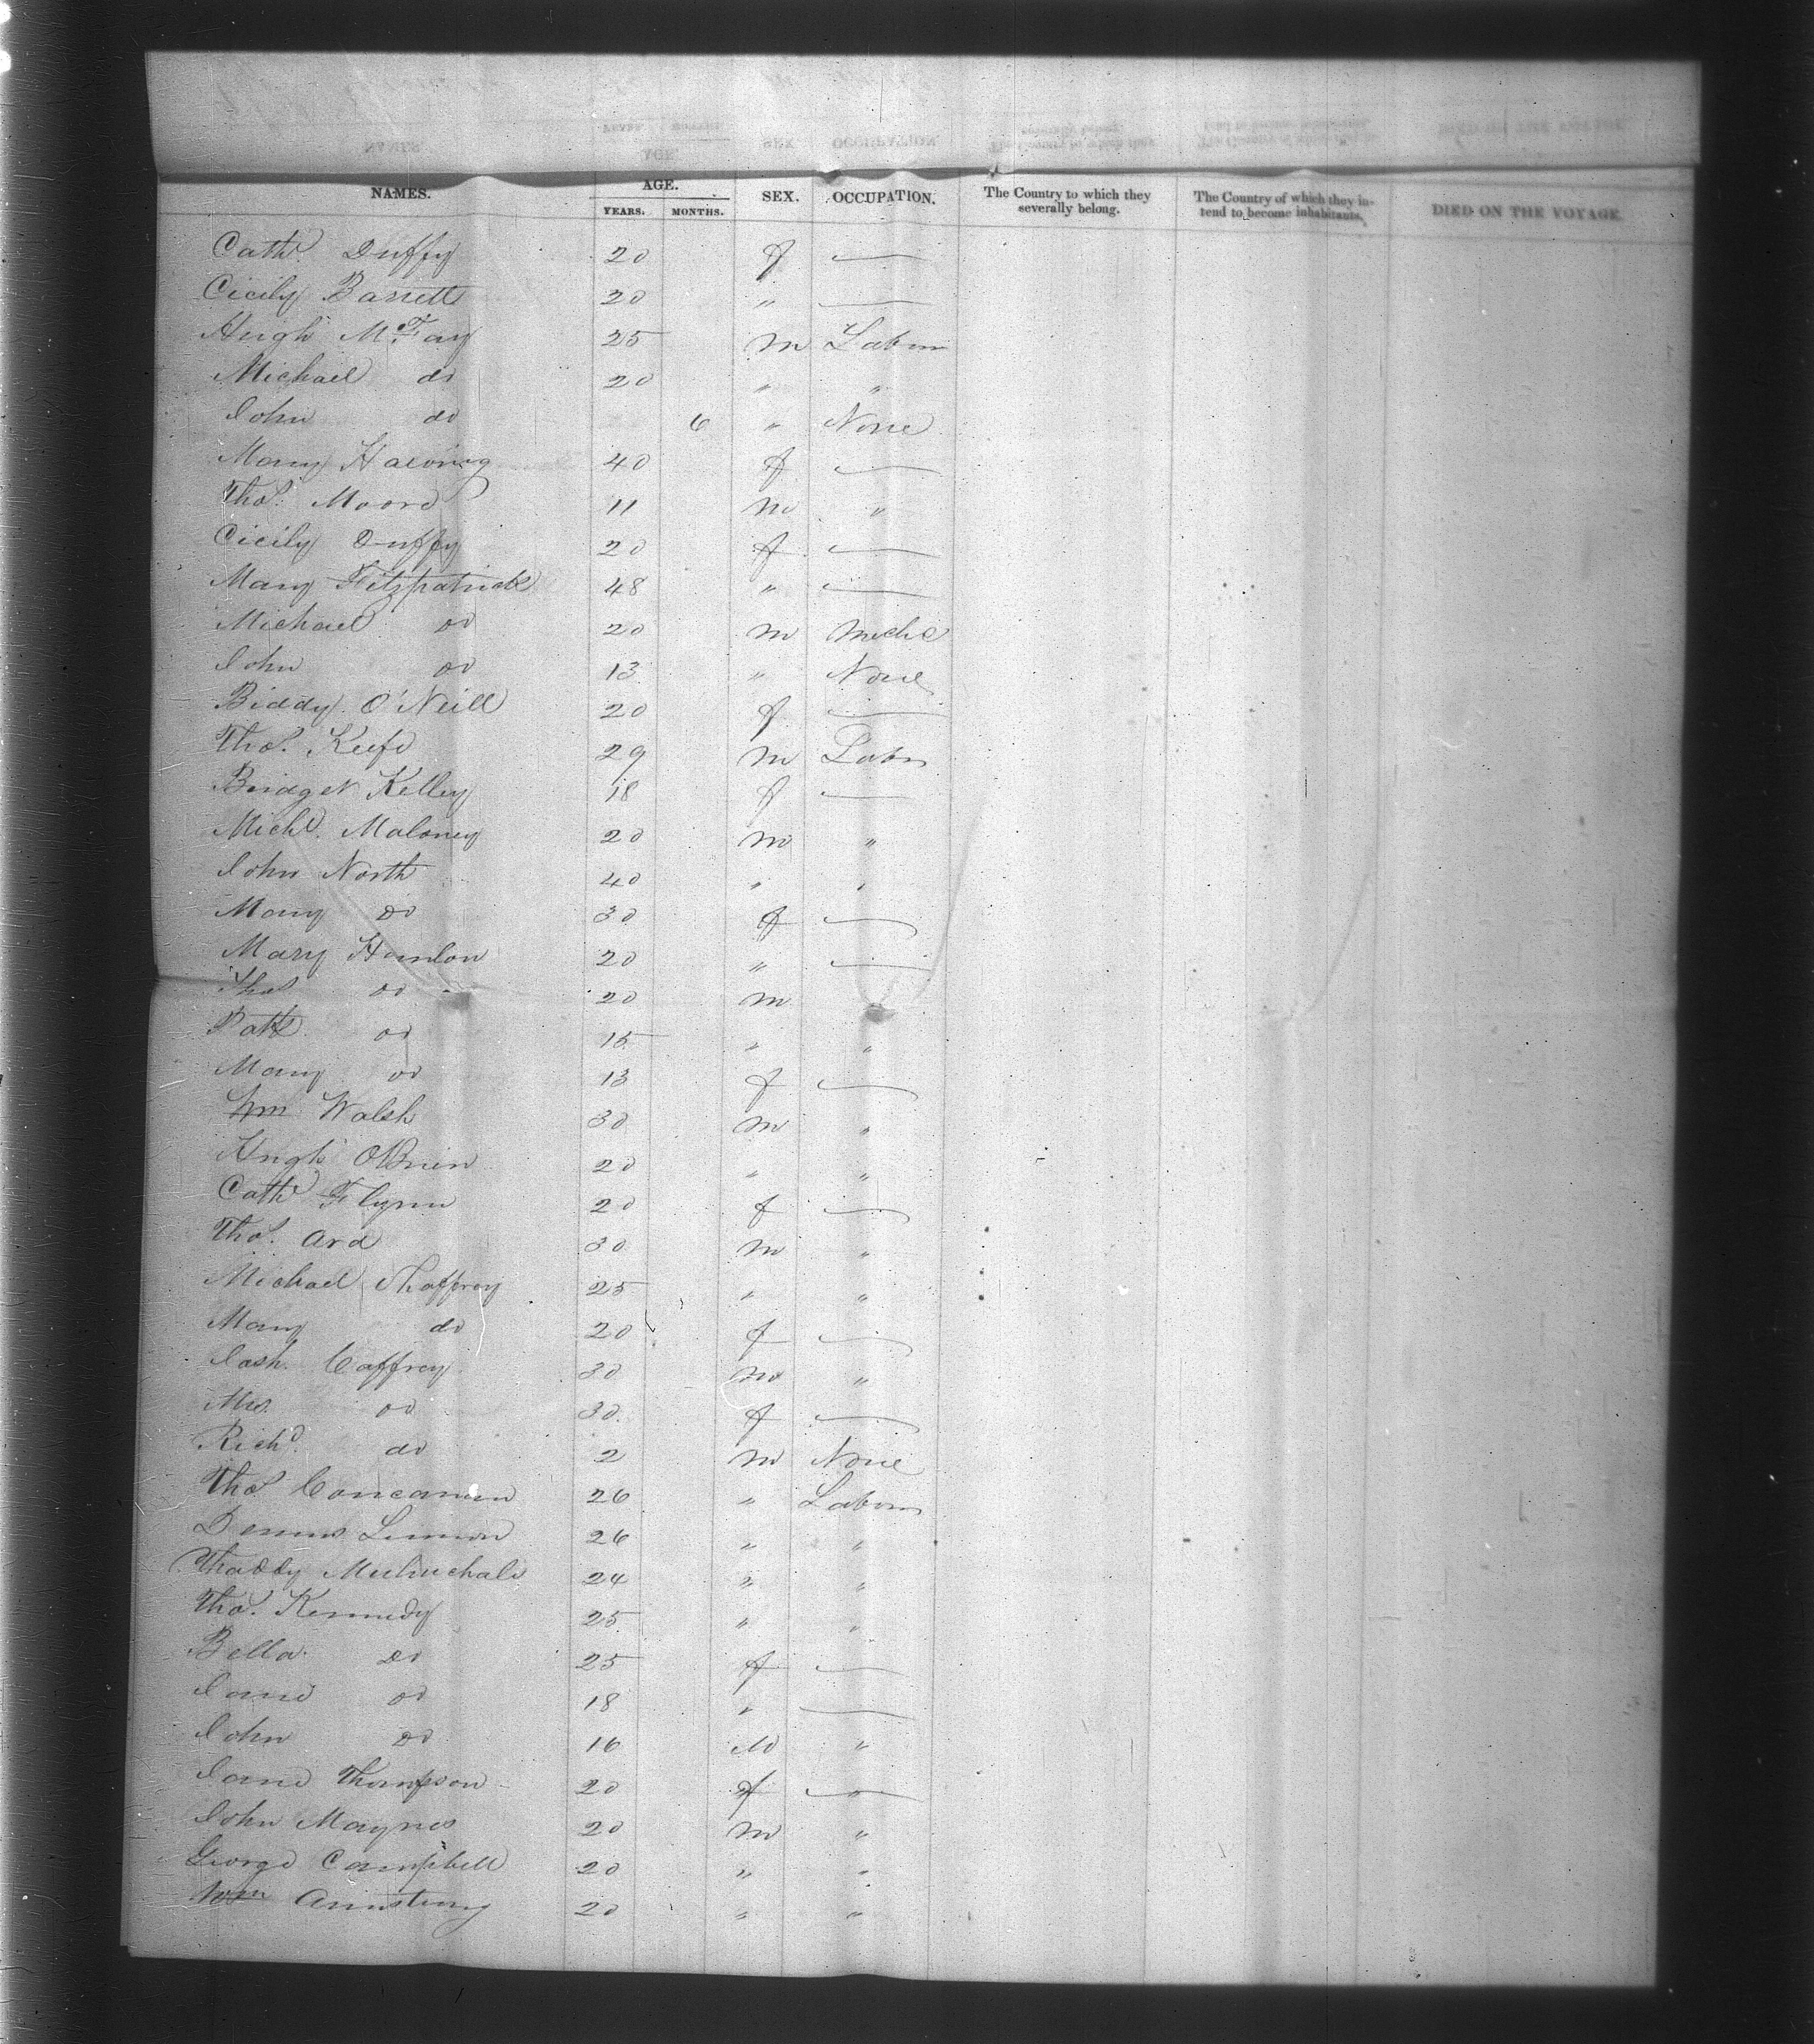 NAMES. AGE. YEARS. MONTHS. SEX. OCCUPATION. The Country to which they severally belong. The Country of which they intend to become inhabitants. DIED ON THE VOYAGE.
Cathe Duffy 20 f —
Cicily Barrett 20 " —
Hugh McFay 25 m Labour
Michael do 20 " "
John do 6 " None
Mary 40 f —
Thos. Moore 11 m "
Cicily Duffy 20 f —
Mary Fitzpatrick 48 " —
Michael do 20 m Mechc
John do 13 " None
Biddy O'Neill 20 f —
Thos. Keefe 29 m Labr
Bridget Kelley 18 f —
Michl. Maloney 20 m "
John North 40 " "
Mary do 30 f —
Mary Hanlon 20 " —
Thos do 20 m
Patk do 15 " "
Mary do 13 f —
Wm Walsh 30 m "
Hugh OBrien 20 " "
Cathe Flynn 20 f —
Thos. Ard 30 m "
Michael 25 " "
Mary do 20 f —
Caffrey 30 m "
Mrs. do 30 f —
Richd. do 2 m None
Thos Concannon 26 " Labour
Dennis Lennon 26 " "
Thaddy 24 " "
Thos. Kennedy 25 " "
Bella do 25 f —
Jane do 18 " —
John do 16 M "
Jane Thompson 20 f —
John Maynes 20 m "
George Campbell 20 " "
Wm Armstrong 20 " "